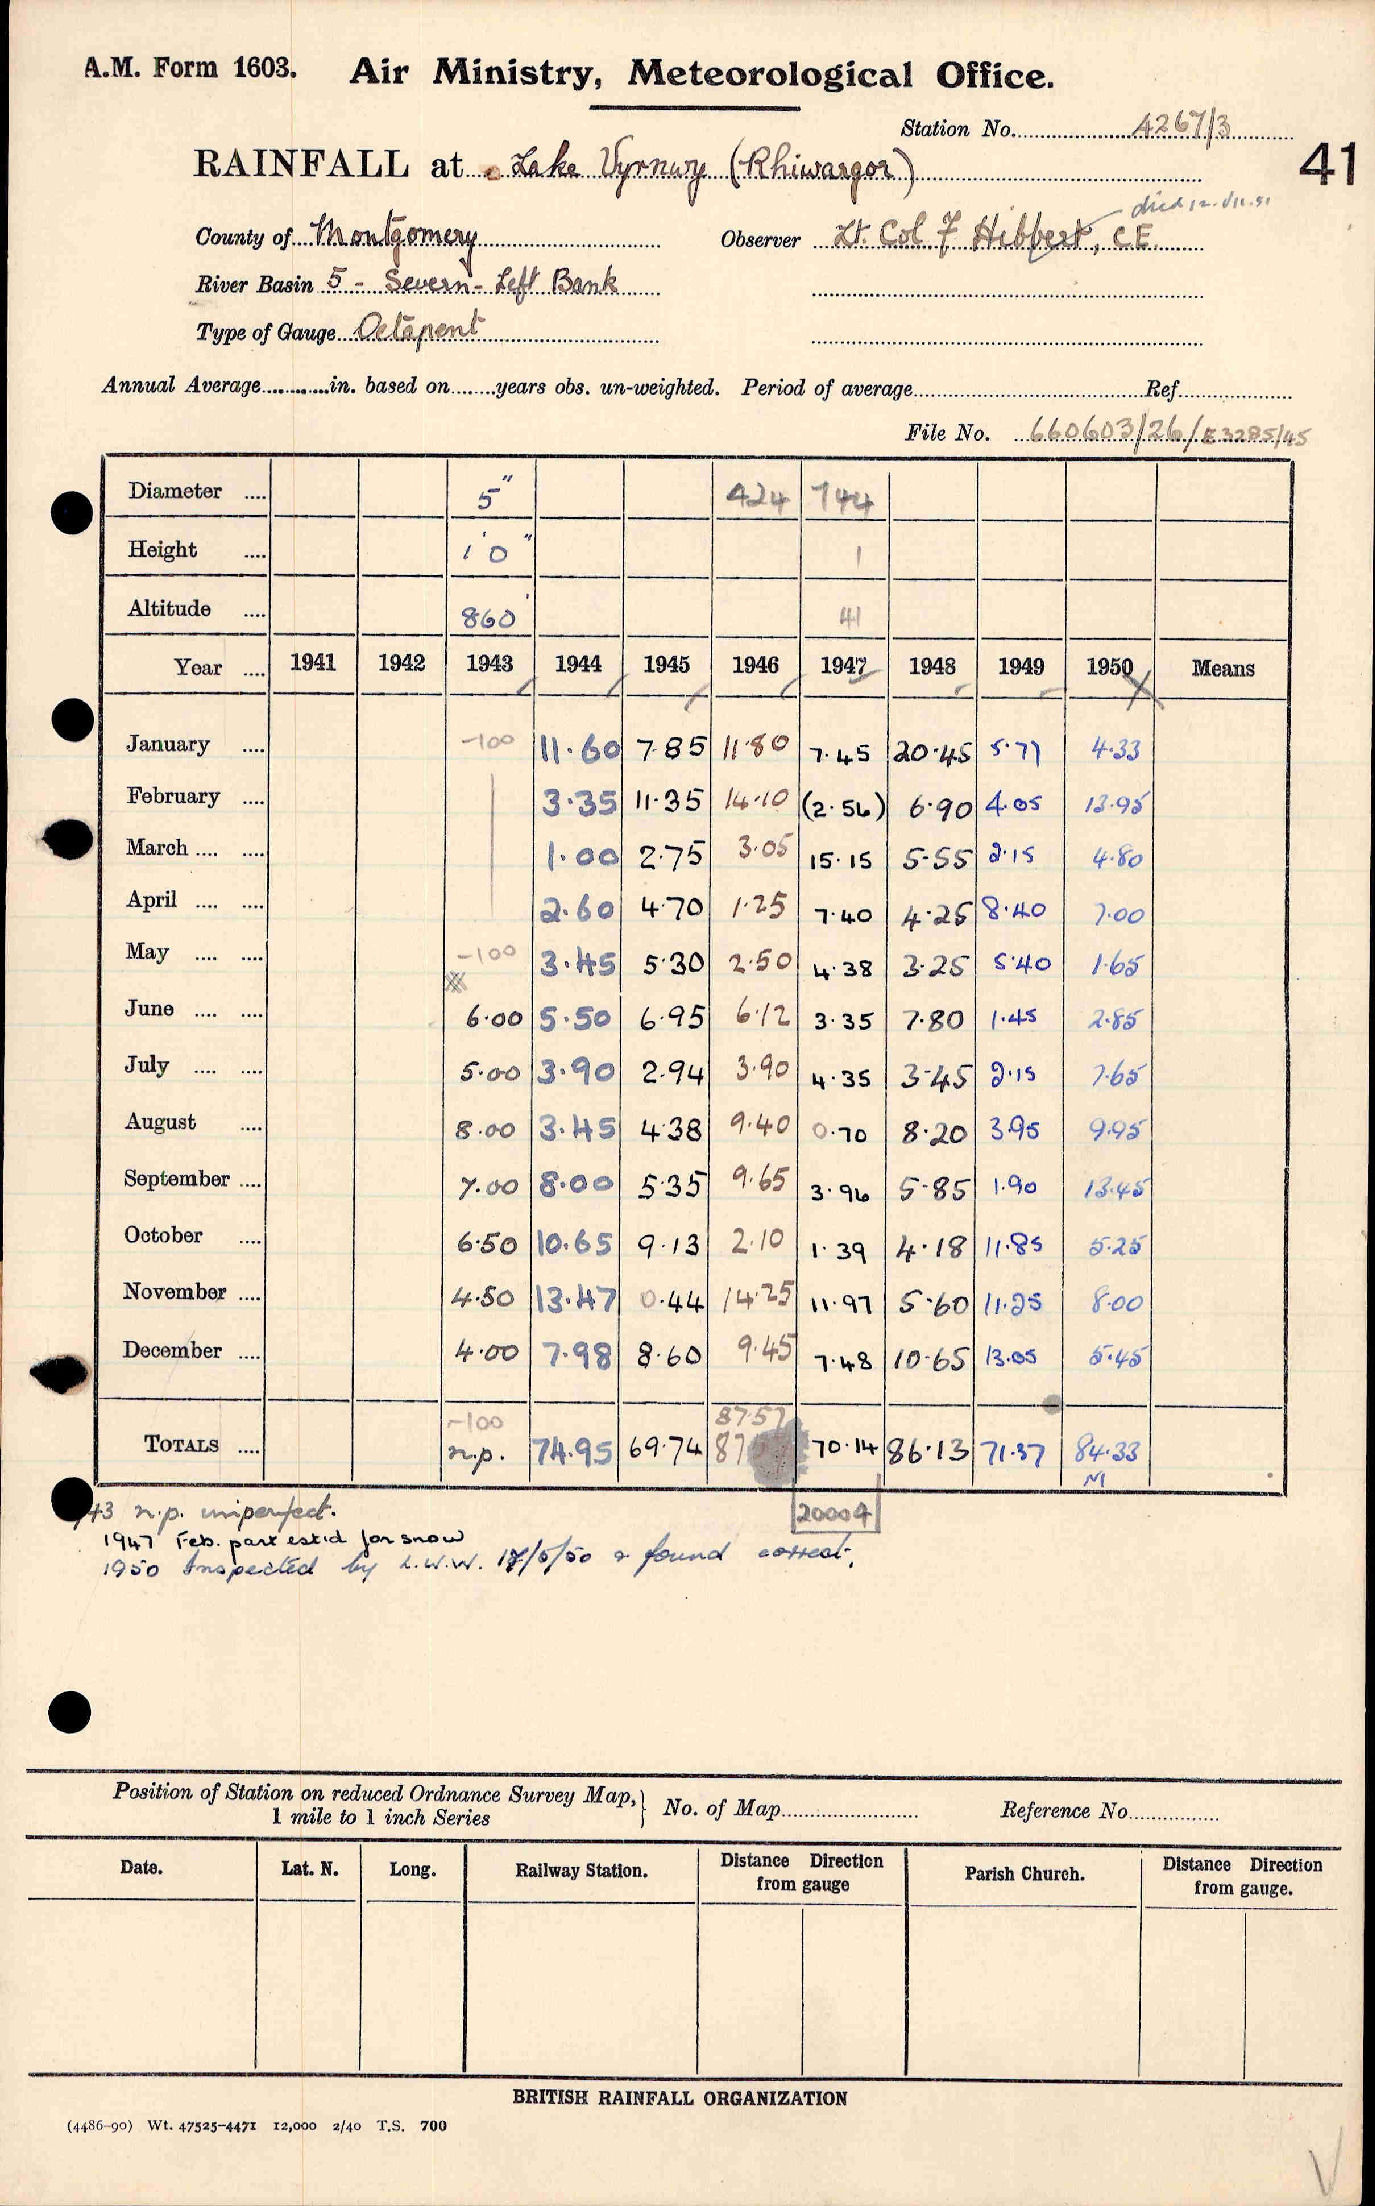 A.M. Form 1603. Air Ministry, Meteorological Office.
Station No. 4267/3
41
RAINFALL at Lake Vyrnwy (Rhiwargor)
died 12.VII.51
County of Montgomery Observer Lt. Col F Hibbert, C.E.
River Basin 5 - Severn - Left Bank
Type of Gauge Octapent
Annual Average in. based on years obs. un-weighted. Period of average Ref
File No. 660603/26/E3285/45
Diameter 5" 424 744
Height 1' 0" 1
Altitude 860' 41
Year 1941 1942 1943 1944 1945 1946 1947 1948 1949 1950 Means
January -100 11.60 7.85 11.80 7.45 20.45 5.77 4.33
February 3.35 11.35 14.10 (2.56) 6.90 4.05 13.95
March 1.00 2.75 3.05 15.15 5.55 2.15 4.80
April 2.60 4.70 1.25 7.40 4.25 8.40 7.00
May -100 3.45 5.30 2.50 4.38 3.25 5.40 1.65
June 6.00 5.50 6.95 6.12 3.35 7.80 1.45 2.85
July 5.00 3.90 2.94 3.90 4.35 3.45 2.15 7.65
August 8.00 3.45 4.38 9.40 0.70 8.20 3.95 9.95
September 7.00 8.00 5.35 9.65 3.96 5.85 1.90 13.45
October 6.50 10.65 9.13 2.10 1.39 4.18 11.85 5.25
November 4.50 13.47 0.44 14.25 11.97 5.60 11.25 8.00
December 4.00 7.98 8.60 9.45 7.48 10.65 13.05 5.45
-100 87.57
TOTALS n.p. 74.95 69.74 87 70.14 86.13 71.37 84.33
20004
43 n.p. imperfect.
1947 Feb. part est'd for snow
1950 Inspected by L.W.W. 17/5/50 & found correct.
Position of Station on reduced Ordnance Survey Map, 1 mile to 1 inch Series } No. of Map Reference No.
Date. Lat. N. Long. Railway Station. Distance Direction from gauge Parish Church. Distance Direction from gauge.
BRITISH RAINFALL ORGANIZATION
(4486-90) Wt. 47525-4471 12,000 2/40 T.S. 700